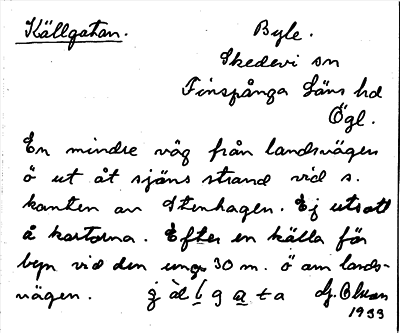 Källgatan. Byle.
Skedevi sn
Finspånga läns hd
Ögl.
En mindre väg från landsvägen
ö ut åt sjöns strand vid s.
kanten av Stenhagen. Ej utsatt
å kartorna. Efter en källa för
byn vid den unge 30 m. ö om lands-
vägen. G. Olson
1933